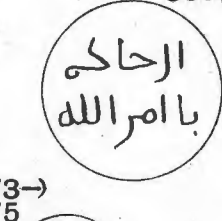 الحاكم
باامر الله
3→)
5